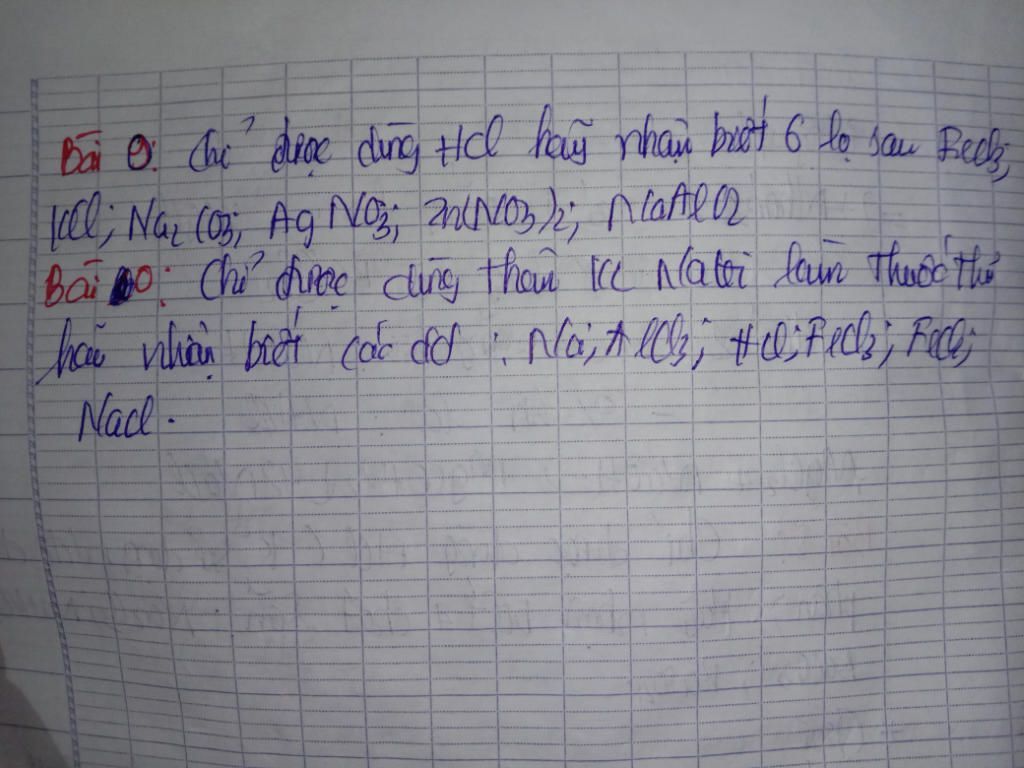 Bài 9: Chỉ được dùng HCl hãy nhận biết 6 lọ sau FeCl3;
KCl; Na2CO3; AgNO3; Zn(NO3)2; NaAlO2
Bài 10: Chỉ được dùng thêm KL Natri làm thuốc thử
hãy nhận biết các dd : AlCl3; HCl; FeCl3; FeCl2;
NaCl.